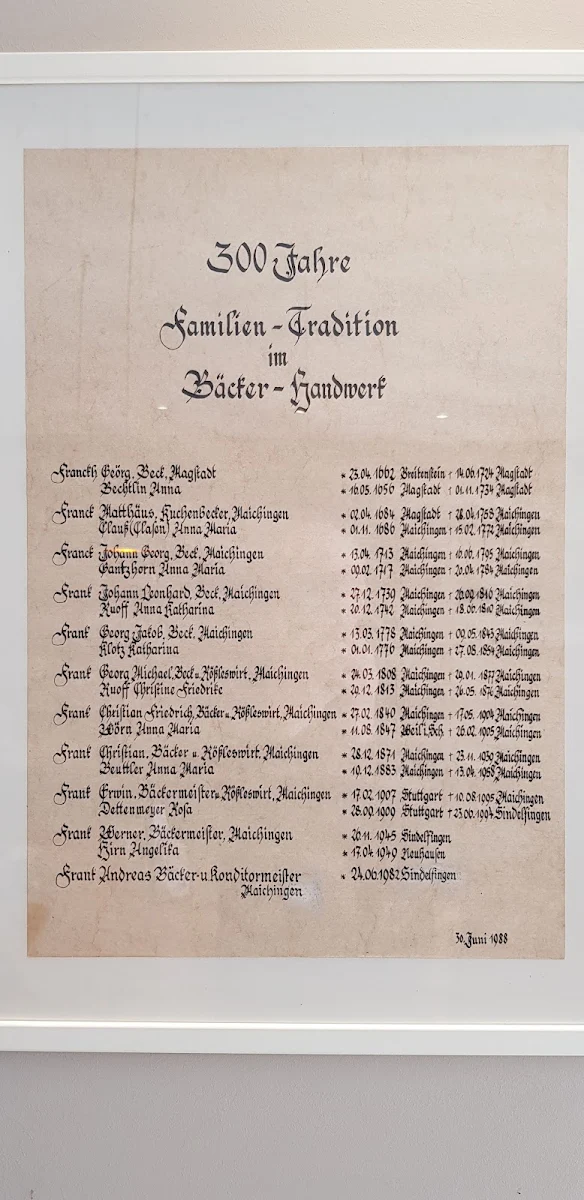 300 Jahre
Familien-Tradition
im
Bäcker-Handwerk
Franckh Geörg, Beck, Magstadt * 23.04.1662 Breitenstein † 14.06.1724 Magstadt
Bechtlin Anna * 16.05.1656 Magstadt † 01.11.1734 Magstadt
Franck Matthäus, Kuchenbecker, Maichingen * 02.04.1684 Magstadt † 28.04.1758 Maichingen
Clauß (Clason) Anna Maria * 01.11.1686 Maichingen † 15.02.1772 Maichingen
Franck Johann Georg, Beck, Maichingen * 13.04.1713 Maichingen † 16.06.1795 Maichingen
Gantzhorn Anna Maria * 09.02.1717 Maichingen † 20.04.1784 Maichingen
Frank Johann Leonhard, Beck, Maichingen * 27.12.1739 Maichingen † 26.09.1810 Maichingen
Ruoff Anna Katharina * 20.12.1742 Maichingen † 18.06.1810 Maichingen
Frank Georg Jakob, Beck, Maichingen * 13.03.1778 Maichingen † 09.05.1843 Maichingen
Klotz Katharina * 01.01.1776 Maichingen † 27.08.1854 Maichingen
Frank Georg Michael, Beck u. Rößleswirt, Maichingen * 24.03.1808 Maichingen † 29.01.1877 Maichingen
Ruoff Christine Friedrike * 29.12.1813 Maichingen † 26.05.1876 Maichingen
Frank Christian Friedrich, Bäcker u. Rößleswirt, Maichingen * 27.02.1840 Maichingen † 17.05.1904 Maichingen
Wörn Anna Maria * 11.08.1847 Weil i. Sch † 26.02.1905 Maichingen
Frank Christian, Bäcker u Rößleswirt, Maichingen * 28.12.1871 Maichingen † 23.11.1950 Maichingen
Beuttler Anna Maria * 10.12.1883 Maichingen † 13.04.1958 Maichingen
Frank Erwin, Bäckermeister u. Rößleswirt, Maichingen * 17.02.1907 Stuttgart † 10.08.1995 Maichingen
Dettenmeyer Rosa * 28.09.1909 Stuttgart † 23.06.1994 Sindelfingen
Frank Werner, Bäckermeister, Maichingen * 26.11.1945 Sindelfingen
Hirn Angelika * 17.04.1949 Neuhausen
Frank Andreas Bäcker-u Konditormeister * 24.06.1982 Sindelfingen
Maichingen
30. Juni 1988